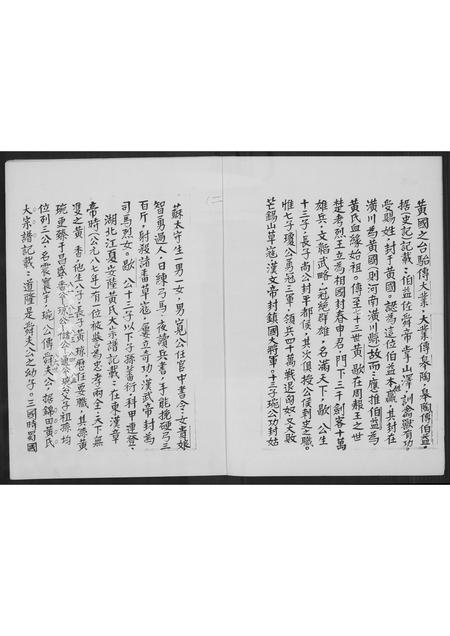 黃國之台駘傳大業，大業傳皋陶，皋陶傳伯益。
據史記記載：伯益佐舜帝掌山澤，訓禽獸有功，
受賜姓，封于黃國。認為這位伯益本人，其封在
潢川為黃國(則河南潢川縣)故而：應推伯益為
黃氏血緣始祖。傳至七十三世黃歇在周赧王之世
楚考烈王立為相國封春申君，門下三千劍客十萬
雄兵，文韜武略，冠絕群雄，名滿天下，歇公生
十三子，長子尚公封平都侯，其次俱授公侯刺史之職。
惟七子瓊公勇冠三軍，領兵四十萬戰退匈奴又大敗
芒錫山草寇，漢文帝封鎮國大將軍。十三子琬公功封姑
(二)
蘇太守生一男一女，男 公任官中書令，女貴娘
智勇過人，日練弓馬，夜讀兵書，手能挽硬弓三
百斤，射殺諸番草寇，屢立奇功，漢武帝封為
司馬烈女。歇公十三子以下子孫蕃衍，科甲連登。
湖北江夏安陸黃氏大宗譜記載：在東漢章
帝時(公元八七年)有一位被譽為忠孝兩全，天下無
雙之黃香，他生八子，長子黃瓊歷任要職，其孫黃
琬更臻于昌盛 祖孫均
位列三公，名震寰宇，琬公傳舜夫公，据錦田黃氏
大宗譜記載：道隆是舜夫公之幼子。三國時蜀國